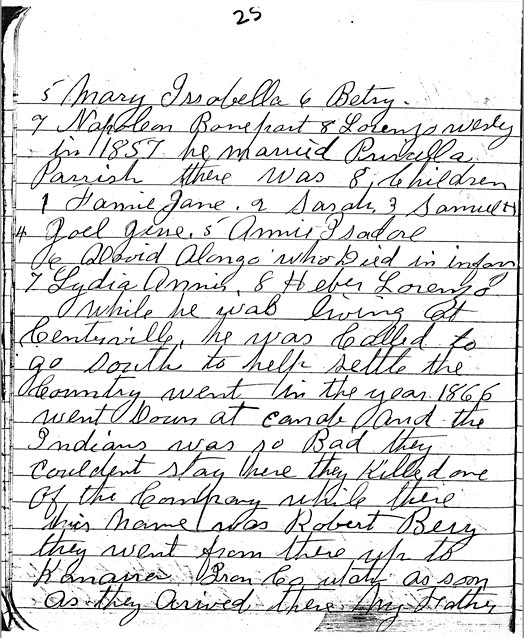 25
5 Mary Issabella 6 Betsy.
7 Napoleon Bonepart 8 Lorenzo wesly
in 1857 he married Priscilla
Parrish there was 8, Children
1 Fannie Jane. 2 Sarah. 3 Samuel H
4 Joel Jine. 5 Annie Isadore
6 David Alonzo who Died in infan
7 Lydia Annie, 8 Heber Lorenzo
While he was living at
Centerville, he was Called to
go South to help settle the
Country went in the year 1866
went Down at and the
Indians was so Bad they
couldent stay there they Killed one
Of the Company while there
his Name was Robert Bery
they went from there up to
Kanarra Iron Co utah as soon
as they Arrived there My Father